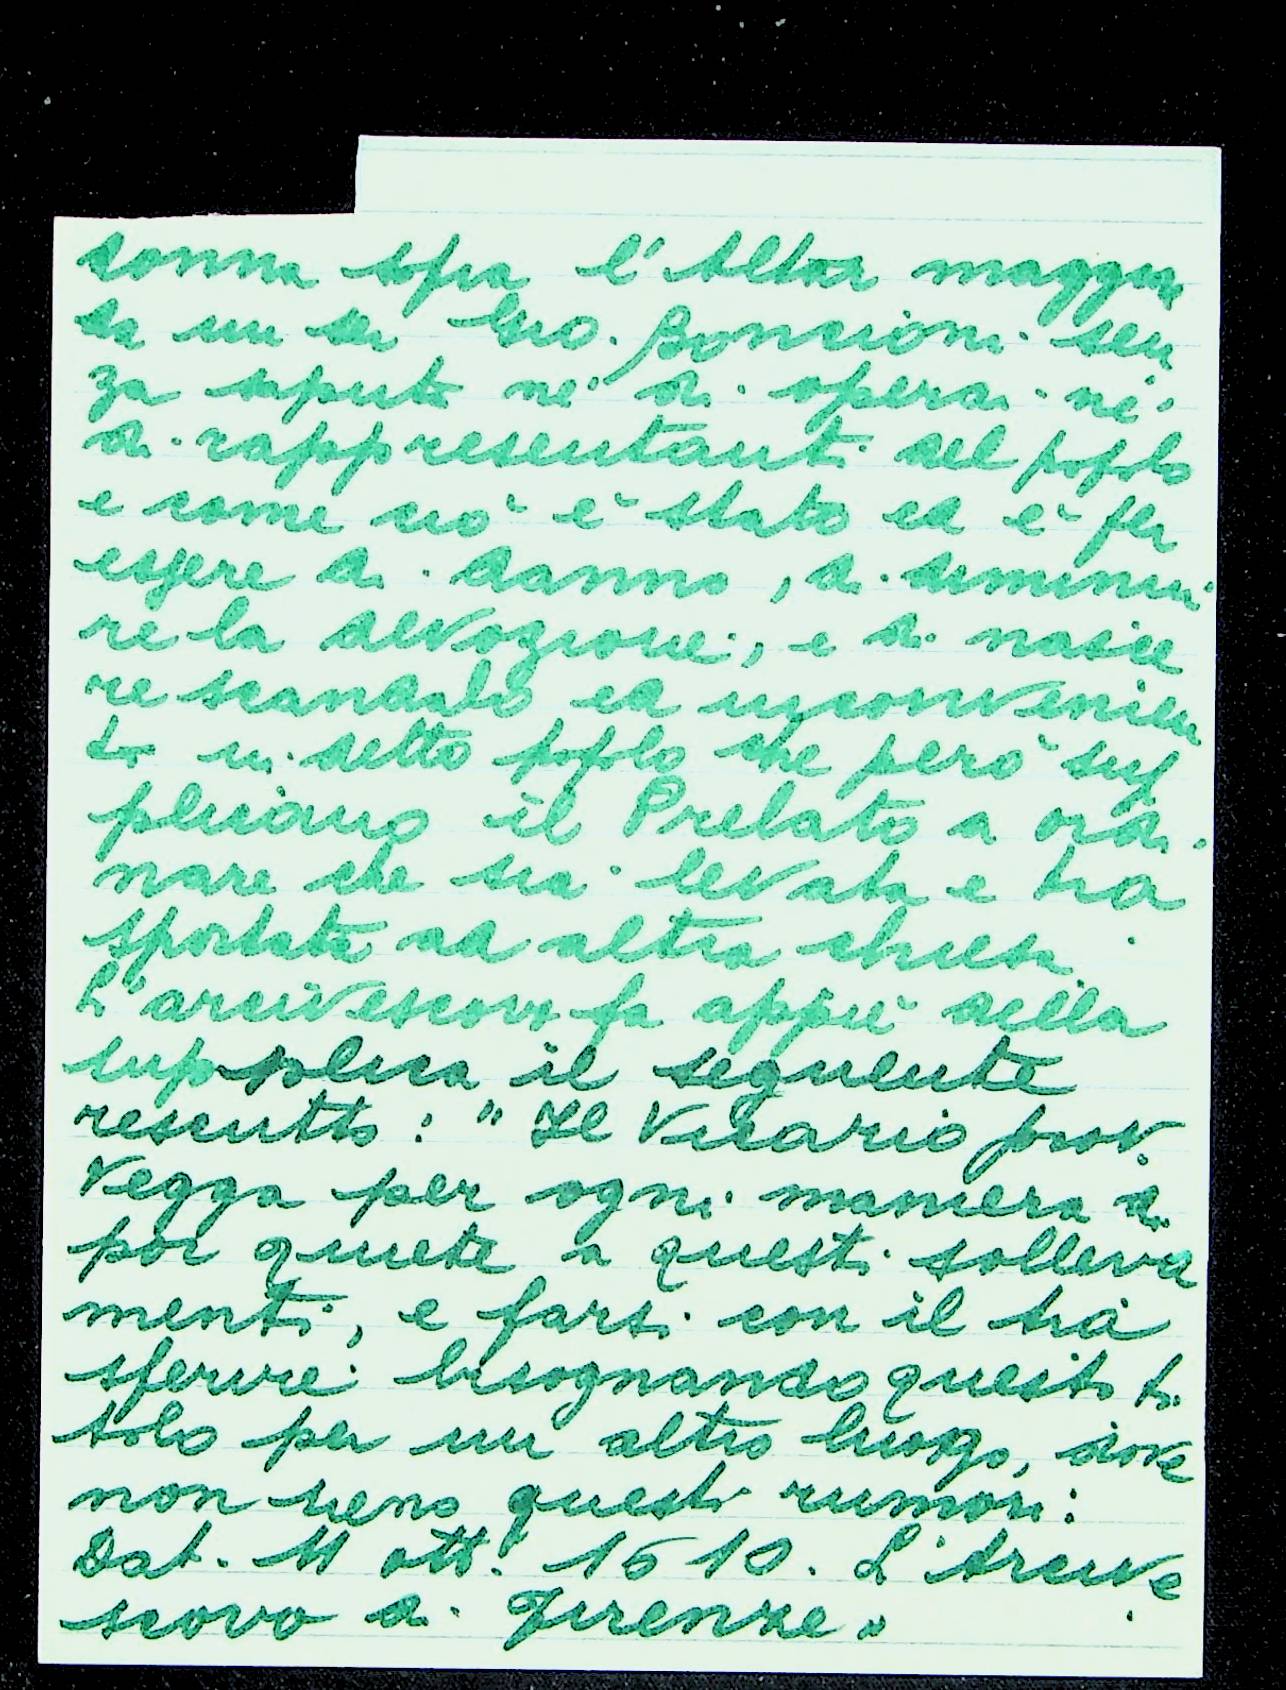 donna sopra l'Altar maggior
da un ser Gio. Bonsioni sen
za saputa né di operai né
di rappresentanti del popolo
e come ciò è stato ed è per
essere di danno, di diminui
re la devozione, e di nasce
re scandalo ed inconvenien
te in detto popolo che però sup
plicano il Prelato a ordi
nare che sia levata e tra
sportata ad altra chiesa.
L'arcivescovo fa appiè della
supplica il seguente
rescritto: "Il Vicario prov
vegga per ogni maniera di
por quiete a questi solleva
menti, e farsi con il tra
sferire bisognando questo ti
tolo per un altro luogo, dove
non sieno questi rumori:
Dat. 11 ott. 1610. L'Arcive
scovo di Firenze"